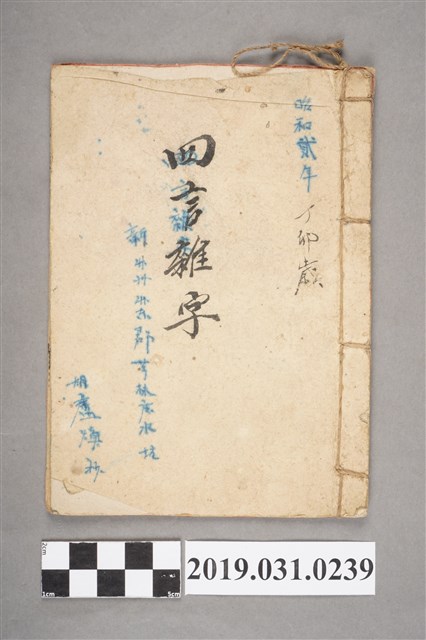 昭和貳年 丁卯歲
四言雜字
新竹州竹東郡芎林庄水坑
盧煥抄
2cm
1cm
5cm
2019.031.0239